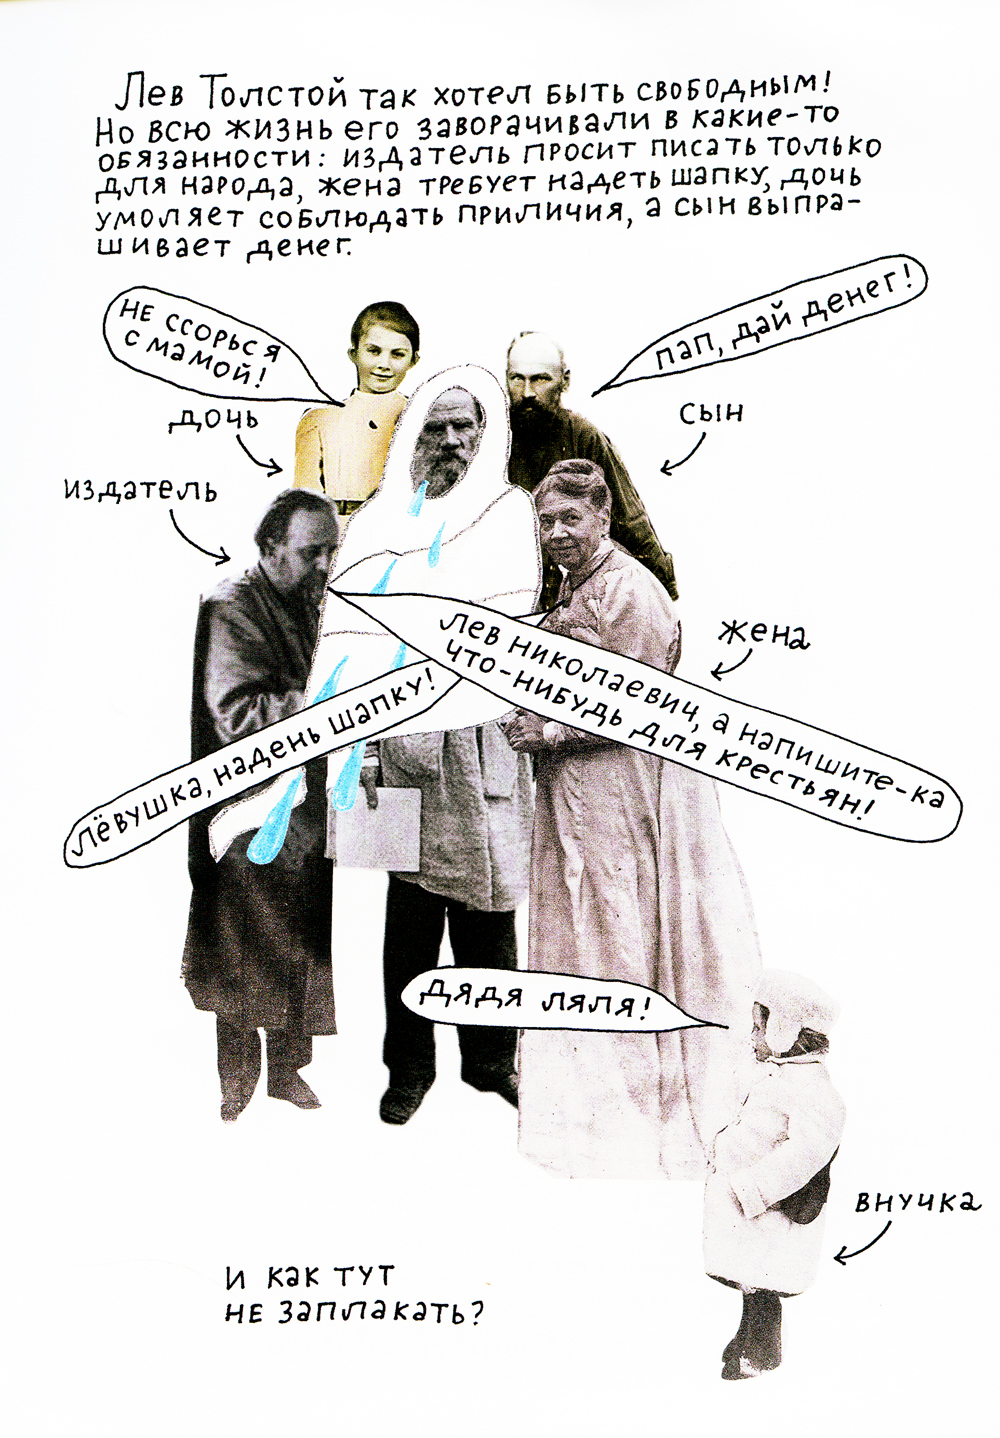 Лев Толстой так хотел быть свободным!
Но всю жизнь его заворачивали в какие-то
обязанности: издатель просит писать только
для народа, жена требует надеть шапку, дочь
умоляет соблюдать приличия, а сын выпра-
шивает денег.
Не ссорься
с мамой!
Пап, дай денег!
дочь
сын
издатель
жена
Лев Николаевич, а напишите-ка
что-нибудь для крестьян!
Лёвушка, надень шапку!
Дядя Ляля!
внучка
И как тут
не заплакать?